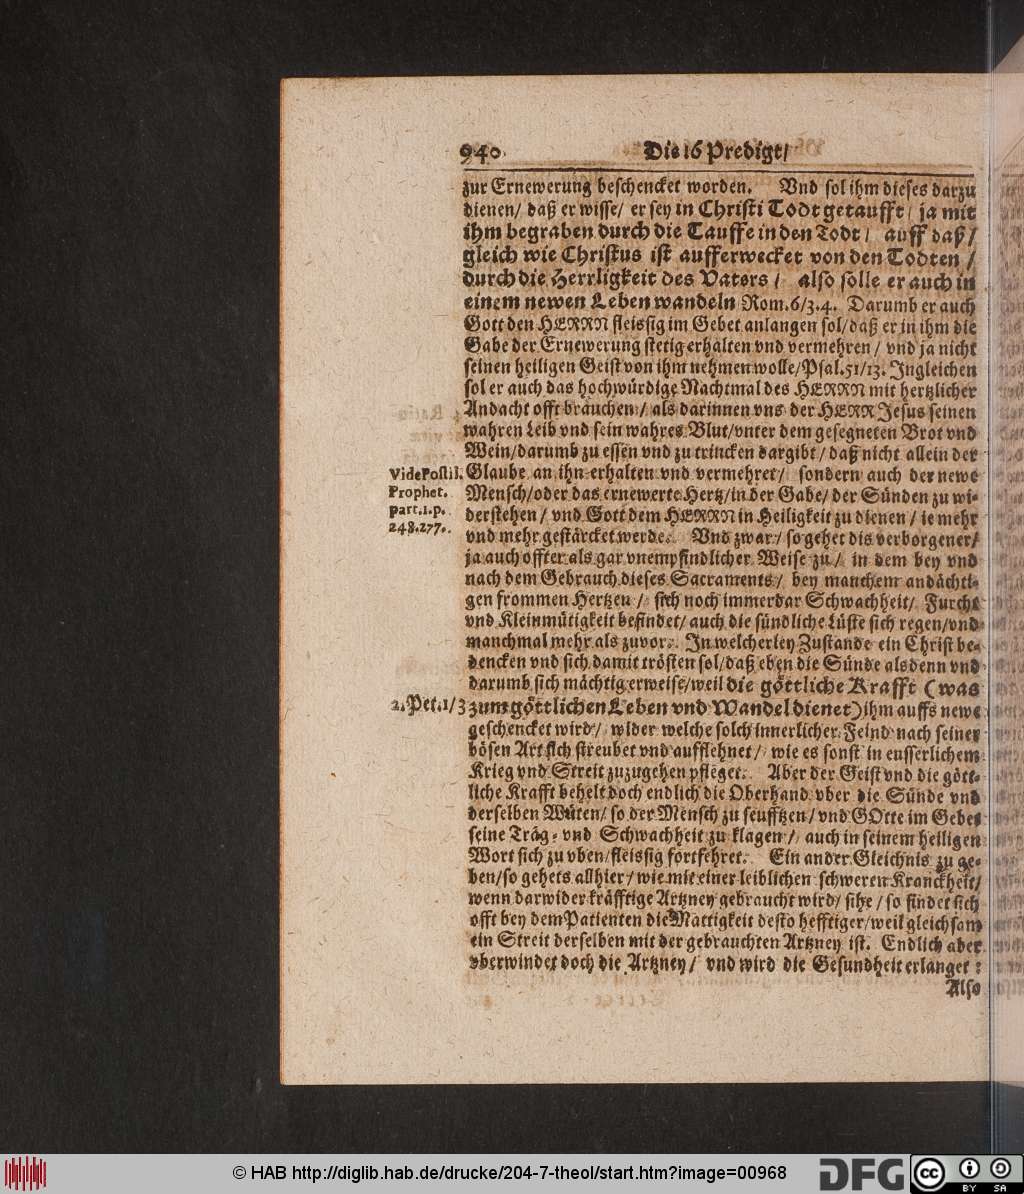 940 Die 16 Predigt/
zur Ernewerung beschencket worden. Vnd sol ihm dieses darzu
dienen/ daß er wisse/ er sey in Christi Todt getaufft/ ja mit
ihm begraben durch die Tauffe in den Todt/ auff daß/
gleich wie Christus ist aufferwecket von den Todten/
durch die Herrligkeit des Vaters/ also solle er auch in
einem newen Leben wandeln Rom.6/3.4. Darumb er auch
Gott den HERRN fleissig im Gebet anlangen sol/daß er in ihm die
Gabe der Ernewerung stetig erhalten vnd vermehren/ vnd ja nicht
seinen heiligen Geist von ihm nehmen wolle/Psal.51/13. Ingleichen
sol er auch das hochwürdige Nachtmal des HERRN mit hertzlicher
Andacht offt brauchen/ als darinnen vns der HERR Jesus seinen
wahren Leib vnd sein wahres Blut/vnter dem gesegneten Brot vnd
Wein/darumb zu essen vnd zu trincken dargibt/ daß nicht allein der
Glaube an ihn erhalten vnd vermehret/ sondern auch der newe
Mensch/oder das ernewerte Hertz/in der Gabe/ der Sünden zu wi-
derstehen/ vnd Gott dem HERRN in Heiligkeit zu dienen/ ie mehr
vnd mehr gestärcket werde. Vnd zwar/ so gehet dis verborgener/
ja auch offter als gar vnempfindlicher Weise zu/ in dem bey vnd
nach dem Gebrauch dieses Sacraments/ bey manchem andächti-
gen frommen Hertzen/ sich noch immerdar Schwachheit/ Furcht
vnd Kleinmütigkeit befindet/ auch die sündliche Lüste sich regen/vnd
manchmal mehr als zuvor. In welcherley Zustande ein Christ be-
dencken vnd sich damit trösten sol/daß eben die Sünde alsdenn vnd
darumb sich mächtig erweise/weil die göttliche Krafft (was
zum göttlichen Leben vnd Wandel dienet) ihm auffs newe
geschencket wird/ wider welche solch innerlicher Feind nach seiner
bösen Art sich streubet vnd aufflehnet/ wie es sonst in eusserlichem
Krieg vnd Streit zuzugehen pfleget. Aber der Geist vnd die gött-
liche Krafft behelt doch endlich die Oberhand vber die Sünde vnd
derselben Wüten/ so der Mensch zu seufftzen/ vnd GOtte im Gebet
seine Träg- vnd Schwachheit zu klagen/ auch in seinem heiligen
Wort sich zu vben/fleissig fortfehret. Ein ander Gleichnis zu ge-
ben/so gehets allhier/ wie mit einer leiblichen schweren Kranckheit/
wenn darwider kräfftige Artzney gebraucht wird/ sihe/ so findet sich
offt bey dem Patienten die Mattigkeit desto hefftiger/weil gleichsam
ein Streit derselben mit der gebrauchten Artzney ist. Endlich aber
vberwindet doch die Artzney/ vnd wird die Gesundheit erlanget:
Also
Vide Postil.
Prophet.
part.1.p.
248.277.
2.Pet.1/3
© HAB http://diglib.hab.de/drucke/204-7-theol/start.htm?image=00968
DFG
cc BY SA